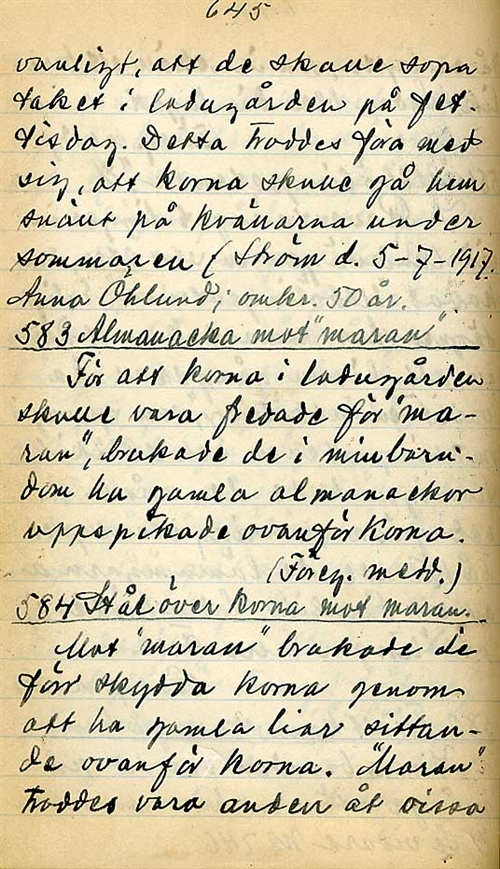 645
vanligt, att de skulle sopa
taket i ladugården på fet-
tisdag. Detta troddes föra med
sig, att korna skulle gå hem
snällt på kvällarna under
sommaren (Ström d. 5-7-1917.
Anna Öhlund, omkr. 50 år.
583 Almanacka mot "maran"
För att korna i ladugården
skulle vara fredade för "ma-
ran", brukade de i min barn-
dom ha gamla almanackor
uppspikade ovanför korna.
(Föreg. medd.)
584 Stål över korna mot maran.
Mot "maran" brukade de
förr skydda korna genom
att ha gamla liar sittan-
de ovanför korna. "Maran"
troddes vara anden åt vissa